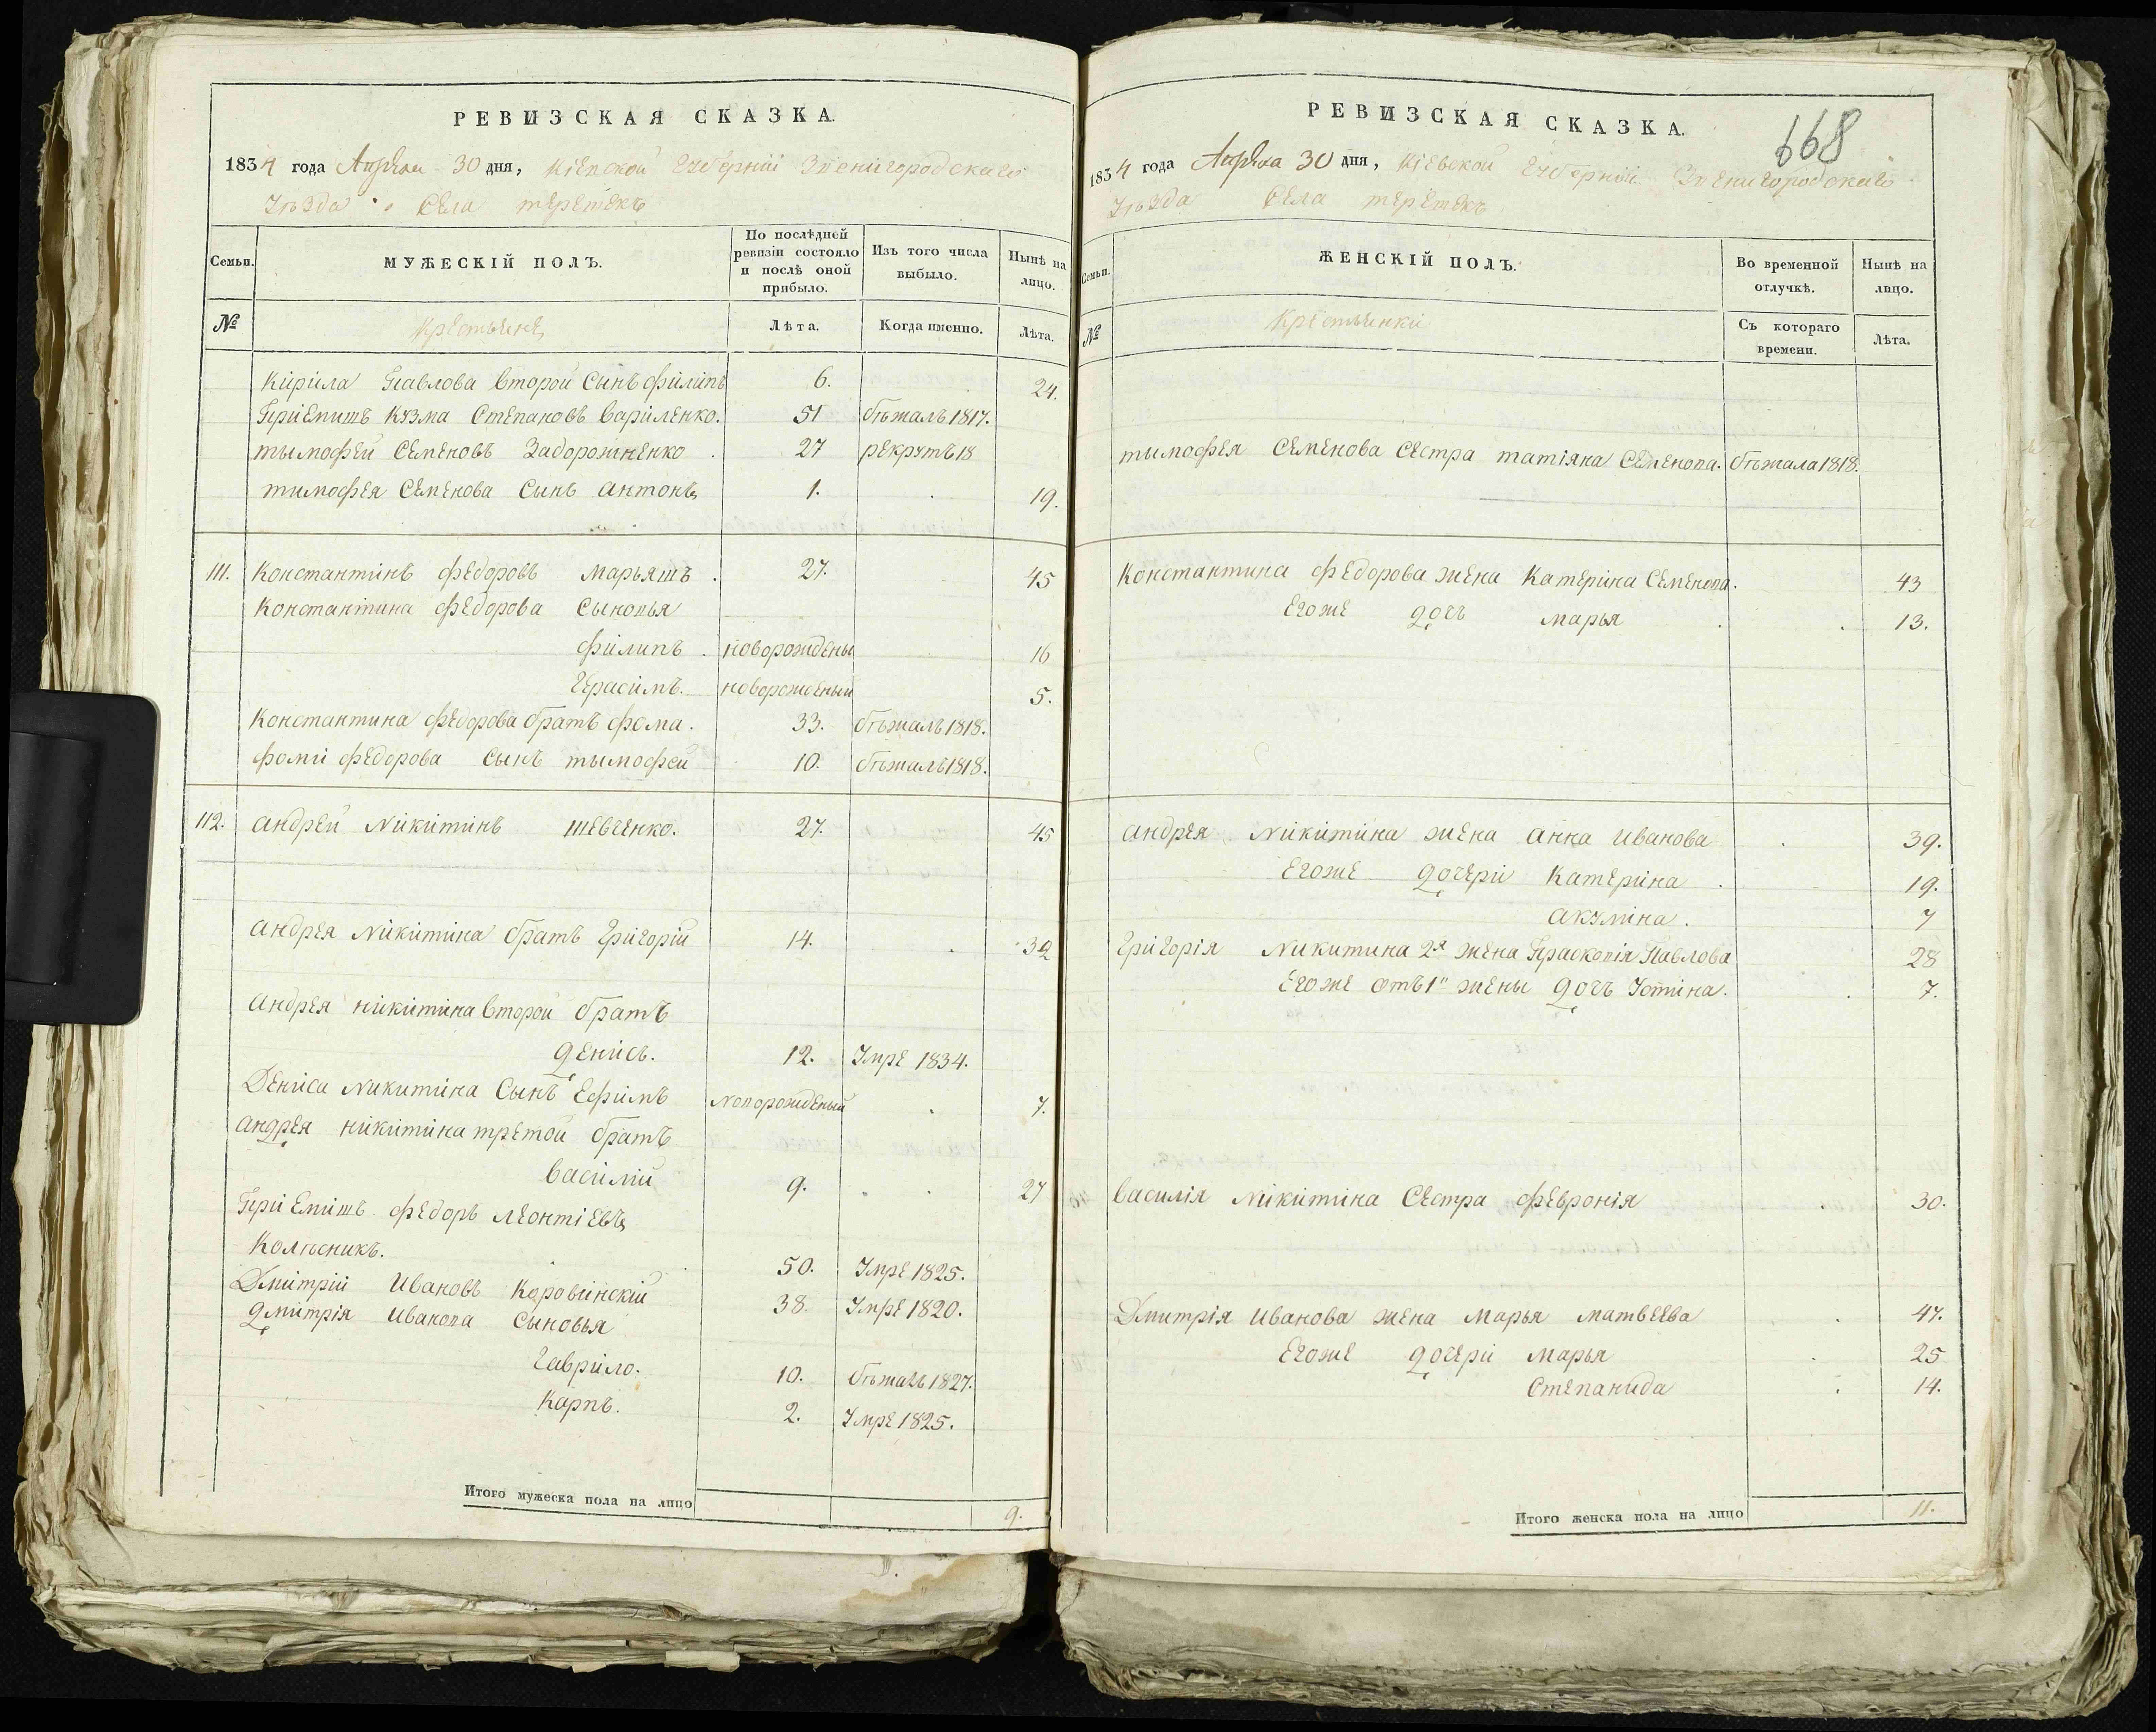 РЕВИЗСКАЯ СКАЗКА.
1834 года Апреля 30 дня, Кіевской Губерніи Звенигородскаго
Уѣзда Села терешекъ
Семьи.
МУЖЕСКІЙ ПОЛЪ.
По послѣдней ревизіи состояло и послѣ оной прибыло.
Изъ того числа выбыло.
Нынѣ на лицо.
№
Крестьяне
Лѣта.
Когда именно.
Лѣта.
Кирила Павлова второй Сынъ филипъ 6. 24.
Приемишъ Кузма Степановъ Вариленко. 51 бѣжалъ 1817.
тымофей Семеновъ Задорожненко 27 рекрутъ 18
тимофея Семенова Сынъ антонъ 1. 19.
111. Константинъ федоровъ Марьяшъ. 27. 45
Константина федорова Сыновья
филипъ. новорожденый 16
Герасимъ. новорожденый 5.
Константина федорова братъ фома. 33. бѣжалъ 1818.
фоми федорова Сынъ тымофей 10. бѣжалъ 1818.
112. андрей Никитинъ шевченко. 27. 45
андрея Никитина братъ Григорій 14. 32
андрея никитина второй братъ
денисъ. 12. Умре 1834.
Дениса Никитина Сынъ Ефимъ новорожденый 7.
андрея никитина третой братъ
василій 9. 27
Приемишъ федоръ леонтіевъ
Колѣсникъ. 50. Умре 1825.
Дмитрій Ивановъ Каровинскій 38. Умре 1820.
дмитрія иванова Сыновья
гаврило. 10. бѣжалъ 1827.
Карпъ. 2. Умре 1825.
Итого мужеска пола на лицо 9.
668
РЕВИЗСКАЯ СКАЗКА.
1834 года Апреля 30 дня, Кіевской Губерніи Звенигородскаго
Уѣзда Села терешекъ
Семьи.
ЖЕНСКІЙ ПОЛЪ.
Во временной отлучкѣ.
Нынѣ на лицо.
№
Крестьянки
Съ котораго времени.
Лѣта.
тимофея Семенова Сестра татіяна Семенова. бѣжала 1818.
Константина федорова жена Катерина Семенова. 43
Егоже дочь марья 13.
андрея Никитина жена анна иванова 39.
Егоже дочери Катерина 19.
акулина. 7
Григорія Никитина 2я жена Праскопія Павлова 28
Егоже отъ 1й жены дочь Устина. 7.
василія Никитина Сестра февронія 30.
Дмитрія иванова жена марья матвеева 47.
Егоже дочери марья 25
Степанида 14.
Итого женска пола на лицо 11.